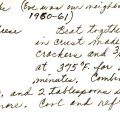 (Eve was our neighbor
1950-61)
Beat together
in crust made
crackers and 3/
at 375°F for
minutes. Combin
, and 2 tablespoons s
more. Cool and refr